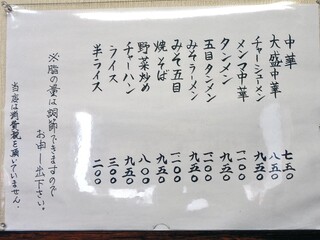 中華 七五〇
大盛中華 八五〇
チャーシューメン 九五〇
メンマ中華 一〇〇
タンメン 九五〇
五目タンメン 一一〇〇
みそラーメン 九五〇
みそ五目 一一〇〇
焼そば 九五〇
野菜炒め 八〇〇
チャーハン 九五〇
ライス 三〇〇
半ライス 二〇〇
※脂の量は調節できますので
お申し出下さい。
当店は消費税を頂いていません。